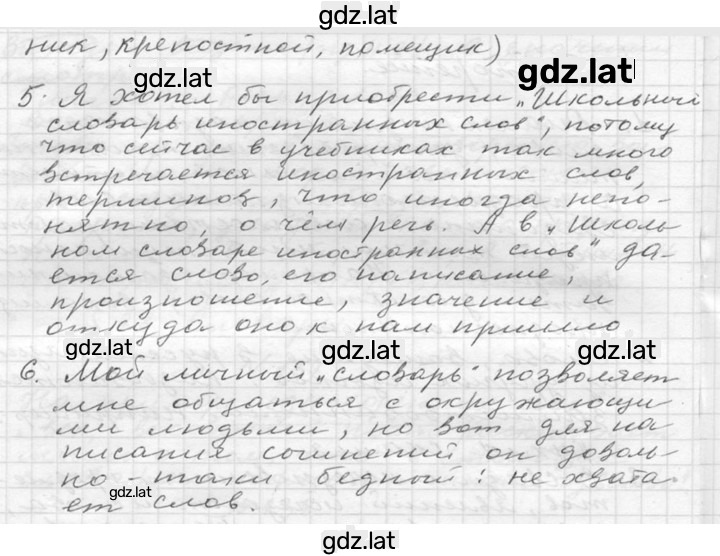 gdz.lat
ник, крепостной, помещик)
gdz.lat
gdz.lat
5. Я хотел бы приобрести „Школьный
словарь иностранных слов", потому
что сейчас в учебниках так много
встречается иностранных слов,
терминов, что иногда непо-
нятно, о чём речь. А в „Школь
ном словаре иностранных слов" да-
ется слово, его написание,
произношение, значение и
откуда оно к нам пришло
gdz.lat
gdz.lat
gdz.lat
6. Мой личный „словарь" позволяет
мне общаться с окружающи
ми людьми, но вот для на
писания сочинений он доволь-
но-таки бедный: не хвата
gdz.lat
ет слов.
gdz.lat